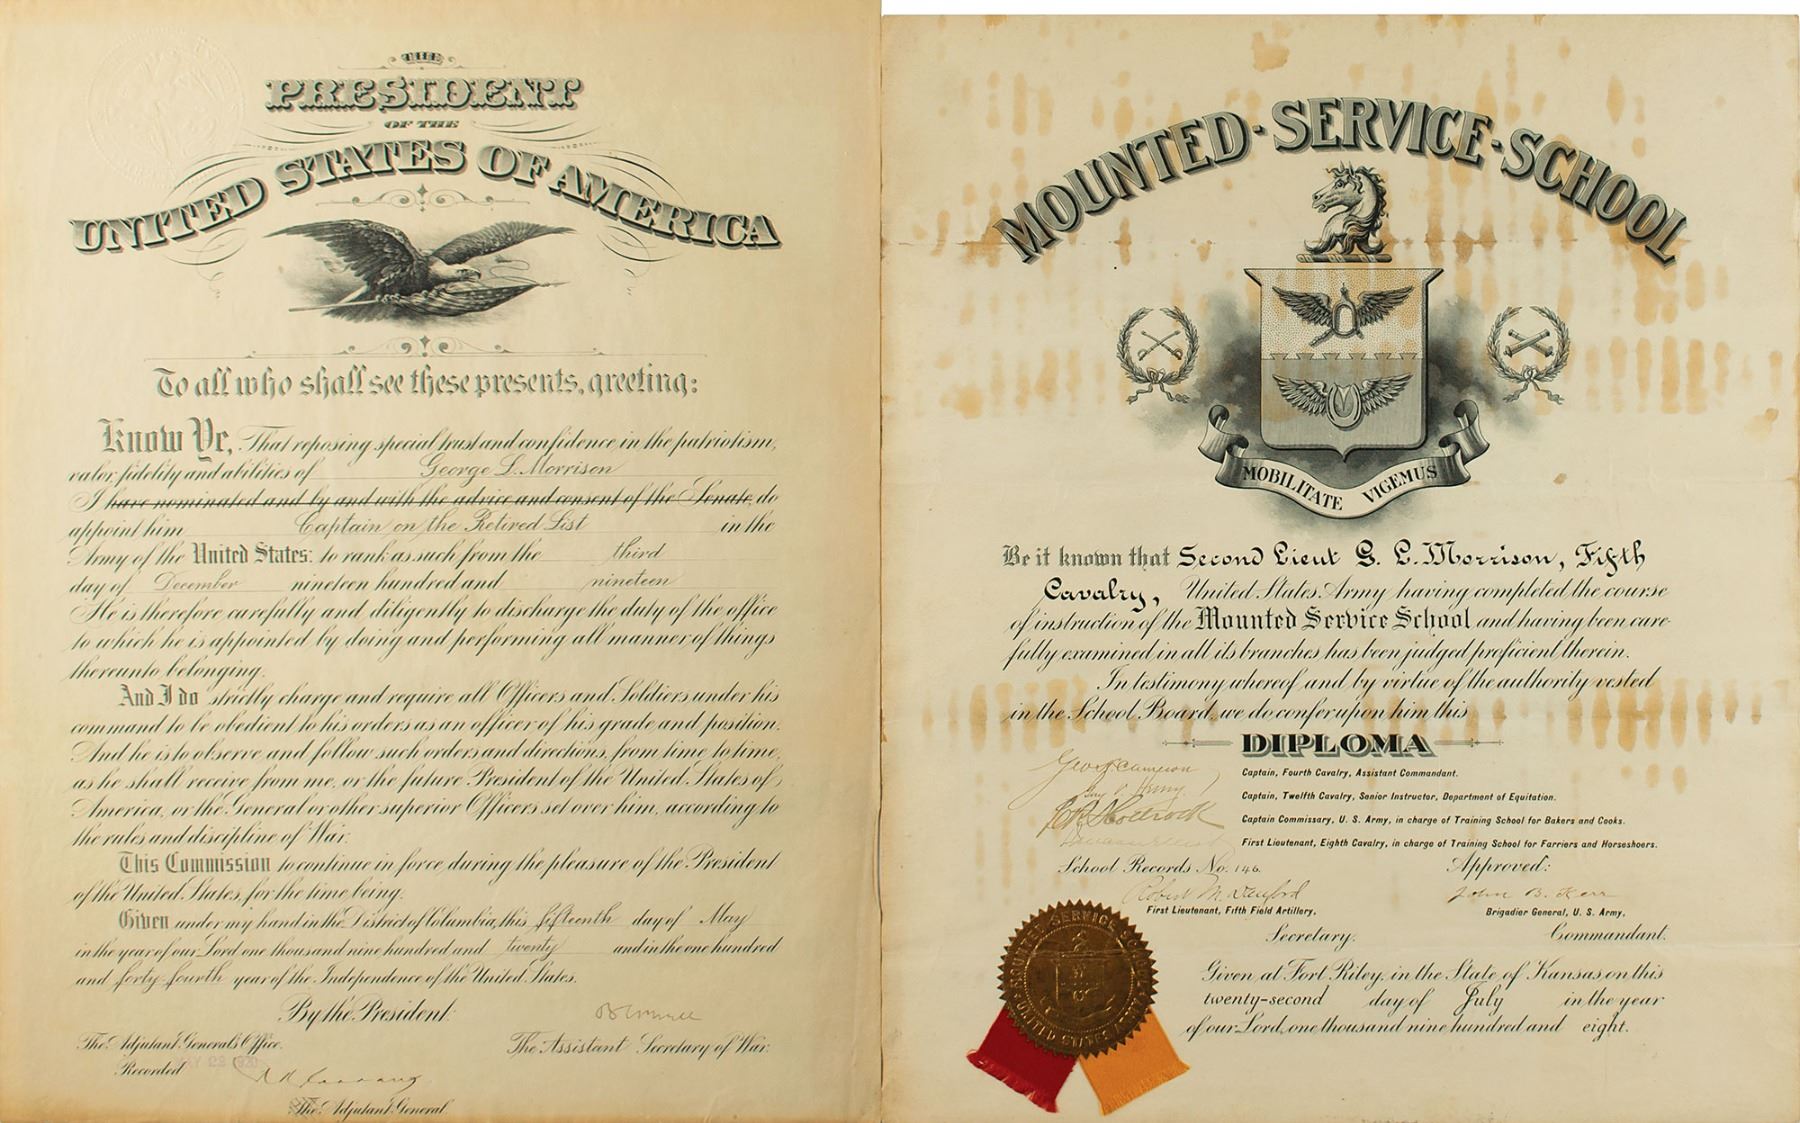 THE
PRESIDENT
OF THE
UNITED STATES OF AMERICA
To all who shall see these presents, greeting:
Know Ye, That reposing special trust and confidence in the patriotism,
valor, fidelity and abilities of George L. Morrison
I have nominated and by and with the advice and consent of the Senate, do
appoint him Captain on the Retired List in the
Army of the United States: to rank as such from the third
day of December nineteen hundred and nineteen
He is therefore carefully and diligently to discharge the duty of the office
to which he is appointed by doing and performing all manner of things
thereunto belonging.
And I do strictly charge and require all Officers and Soldiers under his
command to be obedient to his orders as an officer of his grade and position.
And he is to observe and follow such orders and directions, from time to time,
as he shall receive from me, or the future President of the United States of
America, or the General or other superior Officers set over him, according to
the rules and discipline of War.
This Commission to continue in force during the pleasure of the President
of the United States, for the time being.
Given under my hand in the District of Columbia, this fifteenth day of May
in the year of our Lord one thousand nine hundred and twenty and in the one hundred
and forty-fourth year of the Independence of the United States.
By the President:
The Adjutant General's Office.
The Assistant Secretary of War.
Recorded
The Adjutant General.
MOUNTED-SERVICE-SCHOOL
MOBILITATE VIGEMUS
Be it known that Second Lieut G. L. Morrison, Fifth
Cavalry, United States Army having completed the course
of instruction of the Mounted Service School and having been care-
fully examined in all its branches has been judged proficient therein.
In testimony whereof and by virtue of the authority vested
in the School Board, we do confer upon him this
DIPLOMA
Geo H Cameron Captain, Fourth Cavalry, Assistant Commandant.
Guy V. Henry Captain, Twelfth Cavalry, Senior Instructor, Department of Equitation.
Captain Commissary, U. S. Army, in charge of Training School for Bakers and Cooks.
First Lieutenant, Eighth Cavalry, in charge of Training School for Farriers and Horseshoers.
School Records No. 146. Approved:
Robert M. Danford John B. Kerr
First Lieutenant, Fifth Field Artillery. Brigadier General, U. S. Army.
Secretary. Commandant.
MOUNTED SERVICE SCHOOL
UNITED STATES ARMY
Given at Fort Riley, in the State of Kansas on this
twenty-second day of July in the year
of our Lord, one thousand nine hundred and eight.